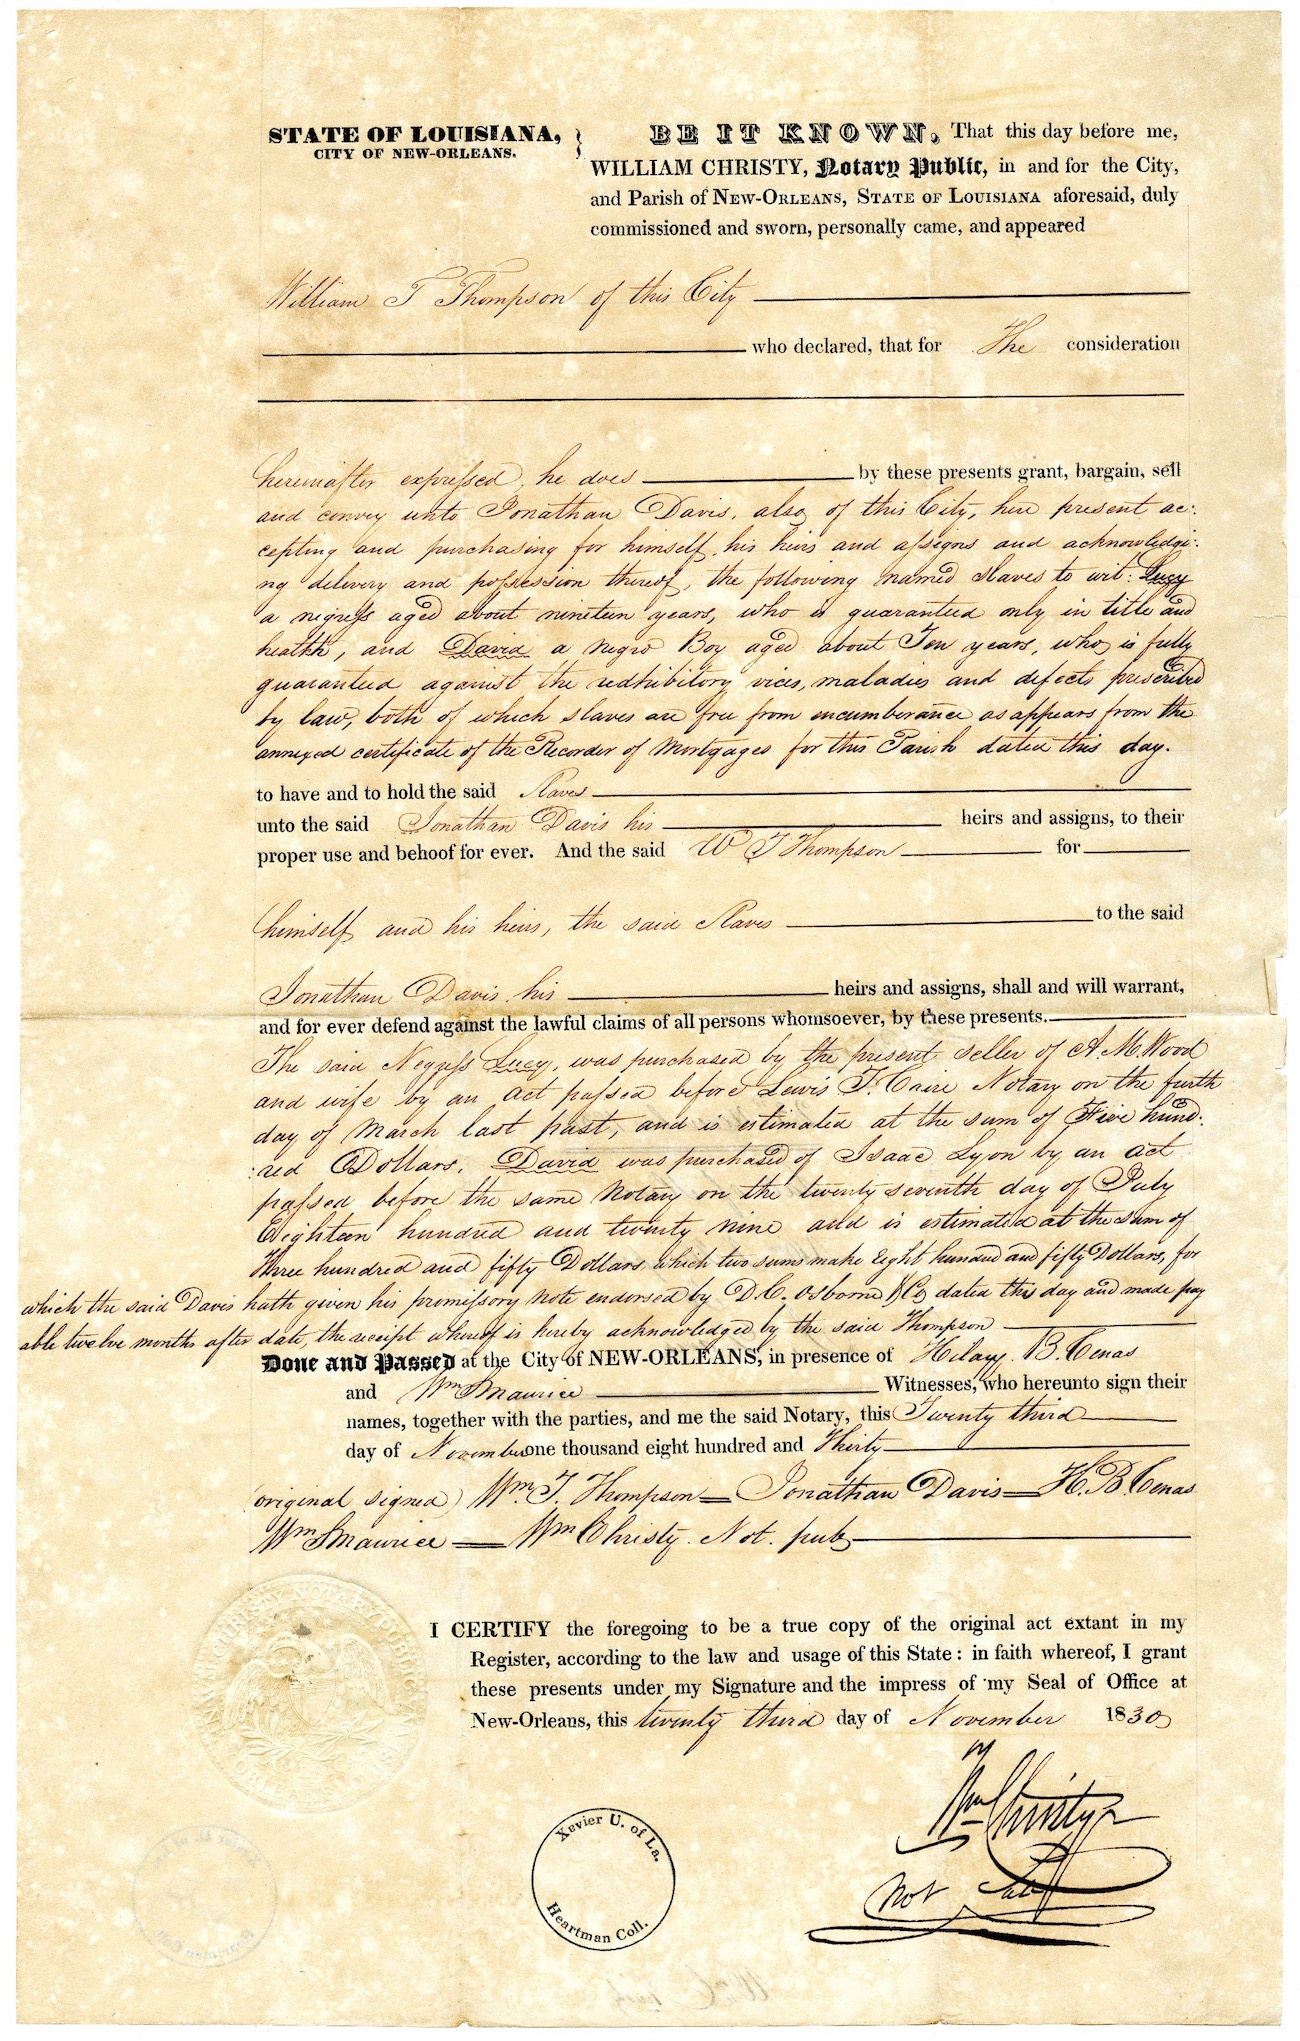 STATE OF LOUISIANA,
CITY OF NEW-ORLEANS.
BE IT KNOWN, That this day before me,
WILLIAM CHRISTY, Notary Public, in and for the City,
and Parish of NEW-ORLEANS, STATE OF LOUISIANA aforesaid, duly
commissioned and sworn, personally came, and appeared
William T Thompson of this City
who declared, that for The consideration
hereinafter expressed, he does by these presents grant, bargain, sell
and convey unto Jonathan Davis, also of this City, here present ac:
cepting and purchasing for himself, his heirs and assigns and acknowledgi:
ng delivery and possession thereof, the following named slaves to wit: Lucy
a negress aged about nineteen years, who is guaranteed only in title and
health, and David a negro Boy aged about Ten years, who is fully
guaranteed against the redhibitory vices, maladies and defects prescribed
by law, both of which slaves are free from encumberance as appears from the
annexed certificate of the Recorder of Mortgages for this Parish dated this day.
to have and to hold the said Slaves
unto the said Jonathan Davis his heirs and assigns, to their
proper use and behoof for ever. And the said W T Thompson for
himself and his heirs, the said Slaves to the said
Jonathan Davis, his heirs and assigns, shall and will warrant,
and for ever defend against the lawful claims of all persons whomsoever, by these presents.
The said Negress Lucy, was purchased by the present seller of A. M. Wood
and wife by an act passed before Lewis T. Caire Notary on the furth
day of March last past, and is estimated at the sum of Five hund:
:red Dollars. David was purchased of Isaac Lyon by an act
passed before the same Notary on the twenty seventh day of July
Eighteen hundred and twenty nine and is estimated at the sum of
Three hundred and fifty Dollars, which two sums make Eight hundred and fifty Dollars, for
which the said Davis hath given his promissory note endorsed by D. C. Osborne & Co dated this day and made pay
able twelve months after date, the receipt whereof is hereby acknowledged by the said Thompson
Done and Passed at the City of NEW-ORLEANS, in presence of Hilary B. Cenas
and Wm S Maurice Witnesses, who hereunto sign their
names, together with the parties, and me the said Notary, this Twenty third
day of November one thousand eight hundred and Thirty
(original signed) Wm. T. Thompson = Jonathan Davis = H. B. Cenas
Wm S Maurice = Wm Christy. Not. pub
I CERTIFY the foregoing to be a true copy of the original act extant in my
Register, according to the law and usage of this State: in faith whereof, I grant
these presents under my Signature and the impress of my Seal of Office at
New-Orleans, this twenty third day of November 1830
Wm Christy
Not Pub
Xavier U. of La.
Heartman Coll.